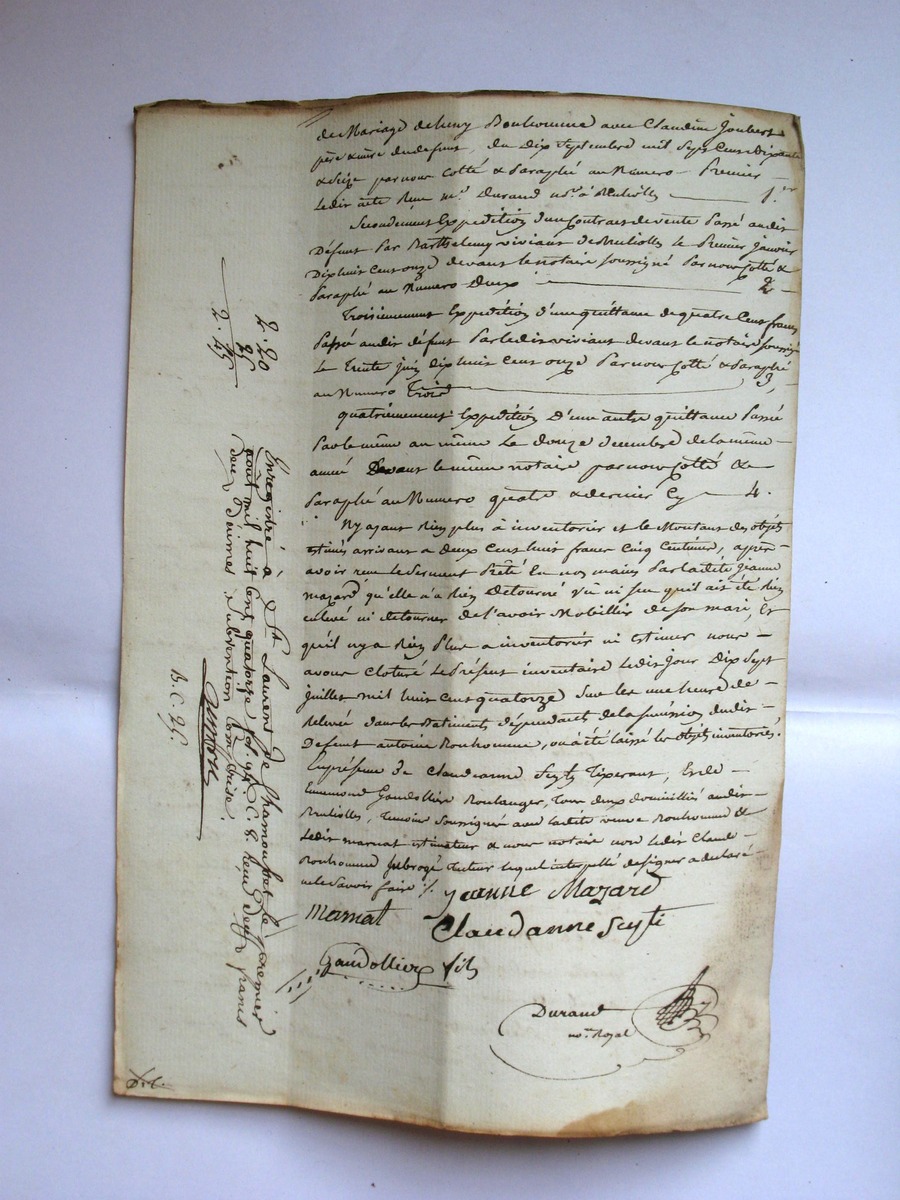 de Mariage de Remy Bonhomme avec Claudine Joubert
père & mère du defunt, du dix Septembre mil Sept Cent Soixante
& Seize par nous Cotté & Paraphé au Numero Premier 1.er
Ledit acte Reçu m.e Durand no.re à
Secondement Expedition d'un Contract de vente Passé audit
Défunt Par Barthelemy viviant de Le Premier janvier
Dix huit Cent onze devant le notaire soussigné Par nous Cotté &
Paraphé au Numero Deux 2
Troisiemement Expedition d'une quittance de quatre Cent francs
Passé audit défunt Par ledit viviant devant le notaire soussigné
Le Trente juin dix huit Cent onze Par nous Cotté & Paraphé
au Numero Trois 3
quatriemement Expedition D'une autre quittance Passé
Par le même au même Le douze decembre de la même
année Devant le même notaire par nous Cotté &
Paraphé au Numero quatre & dernier Cy 4.
N'y ayant Rien plus à inventorier et le Montant des objets
estimés arrivant a deux Cent huit francs Cinq Centimes, après
avoir reçu le Serment Prêté En nos mains Par ladite Jeanne
mazard qu'elle n'a Rien Détourné vu ni su qu'il ait été Rien
enlevé ni detourner de l'avoir Mobillier de son mari, Et
qu'il n'y a Rien Plus a inventorier ni estimer nous
avons Cloturé Le Présent inventaire ledit jour Dix Sept
juillet mil huit Cent quatorze sur les une heure de
Relevée dans les Batiments dépendants de la succession dudit
Defunt antoine Bonhomme, ou à été laissé les objets inventoriés.
En présence de Claudeanne Seyty Tixerant, Et de
Gaudollier Boulanger, Tous deux domiciliés audit
Temoins soussignés avec ladite veuve Bonhomme &
Ledit marnat estimateur & nous notaire non ledit Claude
Bonhomme subrogé Tuteur lequel interpellé de signer a declaré
ne le savoir faire
jeanne Mazard
marnat Claudanne Seyti
Gaudollier fils
Durand
no.re Royal
2. 20
25
2. 45
Enregistré à St Laurent de Chamousset le premier
aout mil huit cent quatorze f.o C. 8. Reçu deux francs
deux Décimes, Subvention Comprise.
B. C. 25.